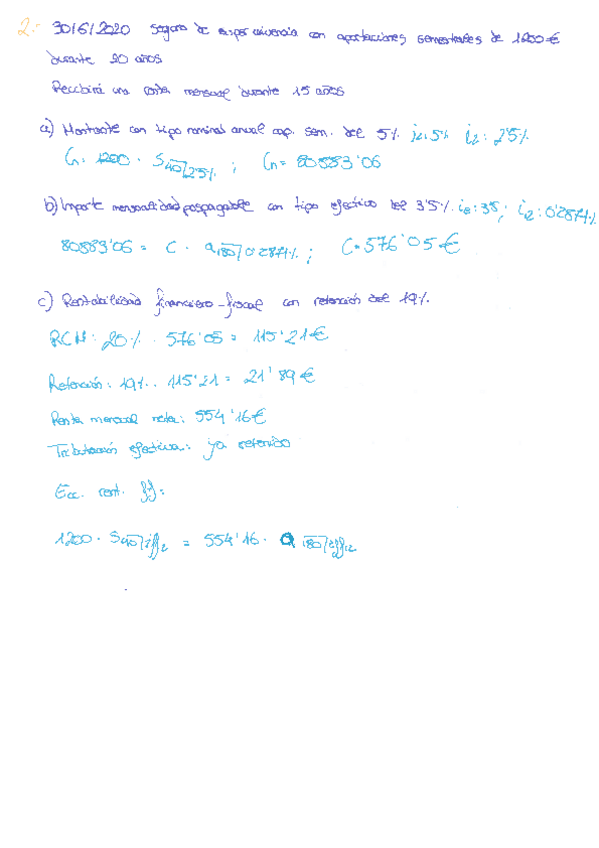 2.- 30/6/2020 Seguro de supervivencia con aportaciones semestrales de 1200€
durante 20 años
Recibirá una renta mensual durante 15 años
a) Montante con tipo nominal anual cap. sem. del 5% j2:5% i2: 2'5%
Cn: 1200 · S40⌉2'5% ; Cn= 80883'06
b) Importe mensualidad pospagable con tipo efectivo del 3'5% ie:3'5; i12: 0'2871%
80883'06 = C · a180⌉0'2871% ; C=576'05€
c) Rentabilidad financiero-fiscal con retención del 19%
RCM: 20% · 576'05 = 115'21€
Retención: 19% · 115'21 = 21'89€
Renta mensual neta: 554'16€
Tributación efectiva: ya retenido
Ec. rent. ff:
1200 · S40⌉iff2 = 554'16 · a180⌉iff12